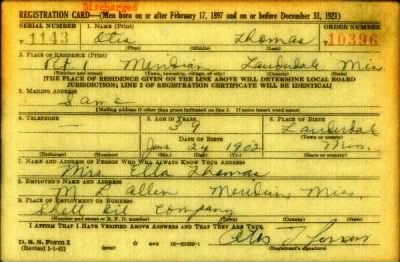 Discharged
REGISTRATION CARD—(Men born on or after February 17, 1897 and on or before December 31, 1921)
SERIAL NUMBER 1. NAME (Print) ORDER NUMBER
1143 Otis Thomas 10396
(First) (Middle) (Last)
2. PLACE OF RESIDENCE (Print)
Rt. 1 Meridian Lauderdale Miss
(Number and street) (Town, township, village, or city) (County) (State)
[THE PLACE OF RESIDENCE GIVEN ON THE LINE ABOVE WILL DETERMINE LOCAL BOARD
JURISDICTION; LINE 2 OF REGISTRATION CERTIFICATE WILL BE IDENTICAL]
3. MAILING ADDRESS
Same
[Mailing address if other than place indicated on line 2. If same insert word same]
4. TELEPHONE 5. AGE IN YEARS 6. PLACE OF BIRTH
39 Lauderdale
DATE OF BIRTH (Town or county)
24 1902 Miss.
(Exchange) (Number) (Mo.) (Day) (Yr.) (State or country)
7. NAME AND ADDRESS OF PERSON WHO WILL ALWAYS KNOW YOUR ADDRESS
Mrs. Ella Thomas
8. EMPLOYER'S NAME AND ADDRESS
M L Allen Meridian Miss.
9. PLACE OF EMPLOYMENT OR BUSINESS
Shell Oil Company
(Number and street or R. F. D. number) (Town) (County) (State)
I AFFIRM THAT I HAVE VERIFIED ABOVE ANSWERS AND THAT THEY ARE TRUE.
D. S. S. Form 1
(Revised 1-1-42) (over) Otis
(Registrant's signature)